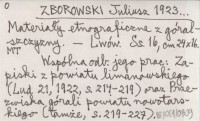 0
ZBOROWSKI Juliusz 1923...
Materiały etnograficzne z góral-
szczyzny. — Lwów. Ss 16, cm 24x16.
MT
Wspólna odb. jego prac: Za-
piski z powiatu limanowskiego
(Lud, 21, 1922, s. 217-219) oraz Prze-
zwiska górali powiatu nowotars-
kiego (tamże, s. 219-227).